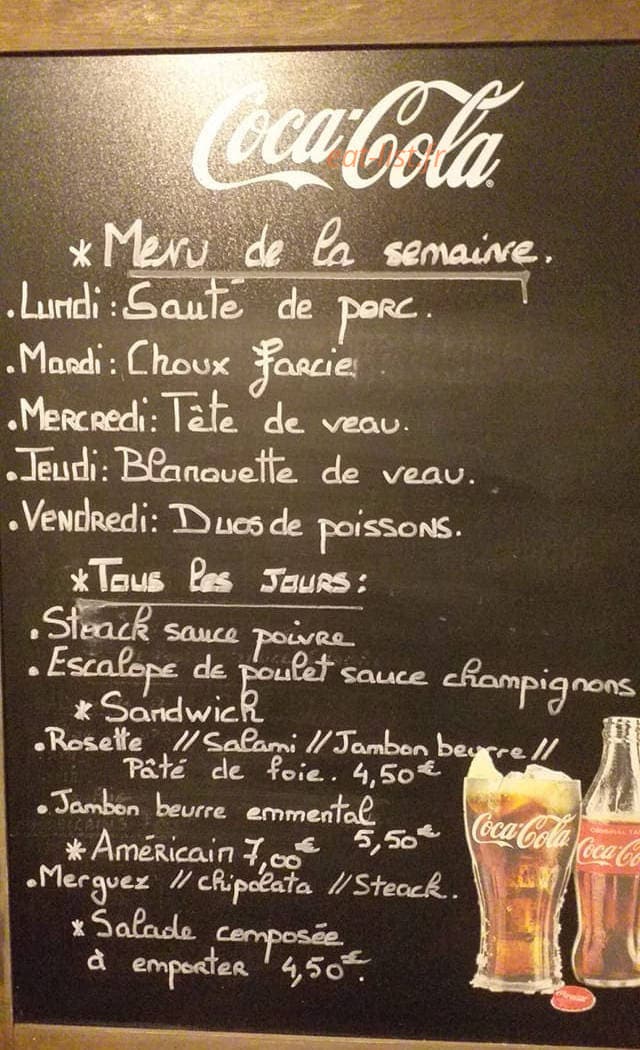 Coca-Cola
eat-list.fr
* Menu de la semaine.
. Lundi : Sauté de porc.
. Mardi : Choux farcie
. Mercredi : Tête de veau.
. Jeudi : Blanquette de veau.
. Vendredi : Duos de poissons.
* Tous les Jours :
. Steack sauce poivre
. Escalope de poulet sauce champignons
* Sandwich
. Rosette // Salami // Jambon beurre //
Pâté de foie. 4,50€
. Jambon beurre emmental
5,50€
* Américain 7,00€
. Merguez // chipolata // Steack.
* Salade composée
à emporter 4,50€.
Coca-Cola
ORIGINAL TA
Coca-Co